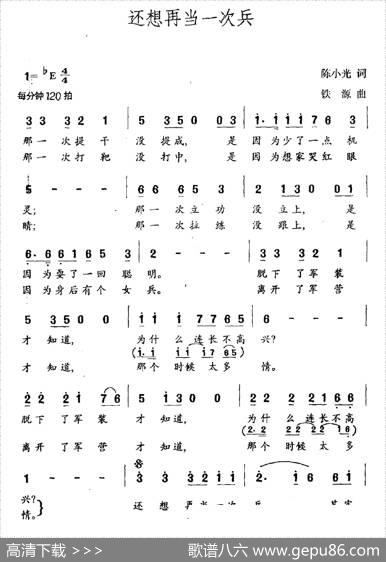 还想再当一次兵
1=♭E 4/4
陈小光 词
每分钟120拍
铁 源 曲
3 3 3 2 1 | 5 3 5 0 0 3 | 1· 1 1 1 7 6 3 |
那一次提干 没提成, 是 因为少了一点机
那一次打靶 没打中, 是 因为想家哭红眼
5 - - - | 6 6 6 5 3 | 2 1 3 0 0 1 |
灵; 那一次立功 没立上, 是
睛; 那一次拉练 没跟上, 是
6· 6 6 1 6 5 3 | 2 - - - | 3 3 2 2 1 7 6 |
因为耍了一回聪明。 脱下了军装
因为身后有个女兵。 离开了军营
5 3 5 0 0 | 1 1 1 7 1 7 6 5 | 6 - - - |
才知道, 为什么连长不高兴?
(1· 1 1 1 1 7 6 5)
才知道, 那个时候太多情。
2 2 2 2 1 7 6 | 5 1 3 0 0 | 2 2 2 2 1 6 6 |
脱下了军装 才知道, 为什么连长不高
(2· 2 2 2 2 2 1 6)
离开了军营 才知道, 那个时候太多
1 - - - | 3 3 3 2 1 1 | 2 - 1 6 6 |
兴?
还想再当一次兵
情。
高清下载 >>>
歌谱八六 www.gepu86.com